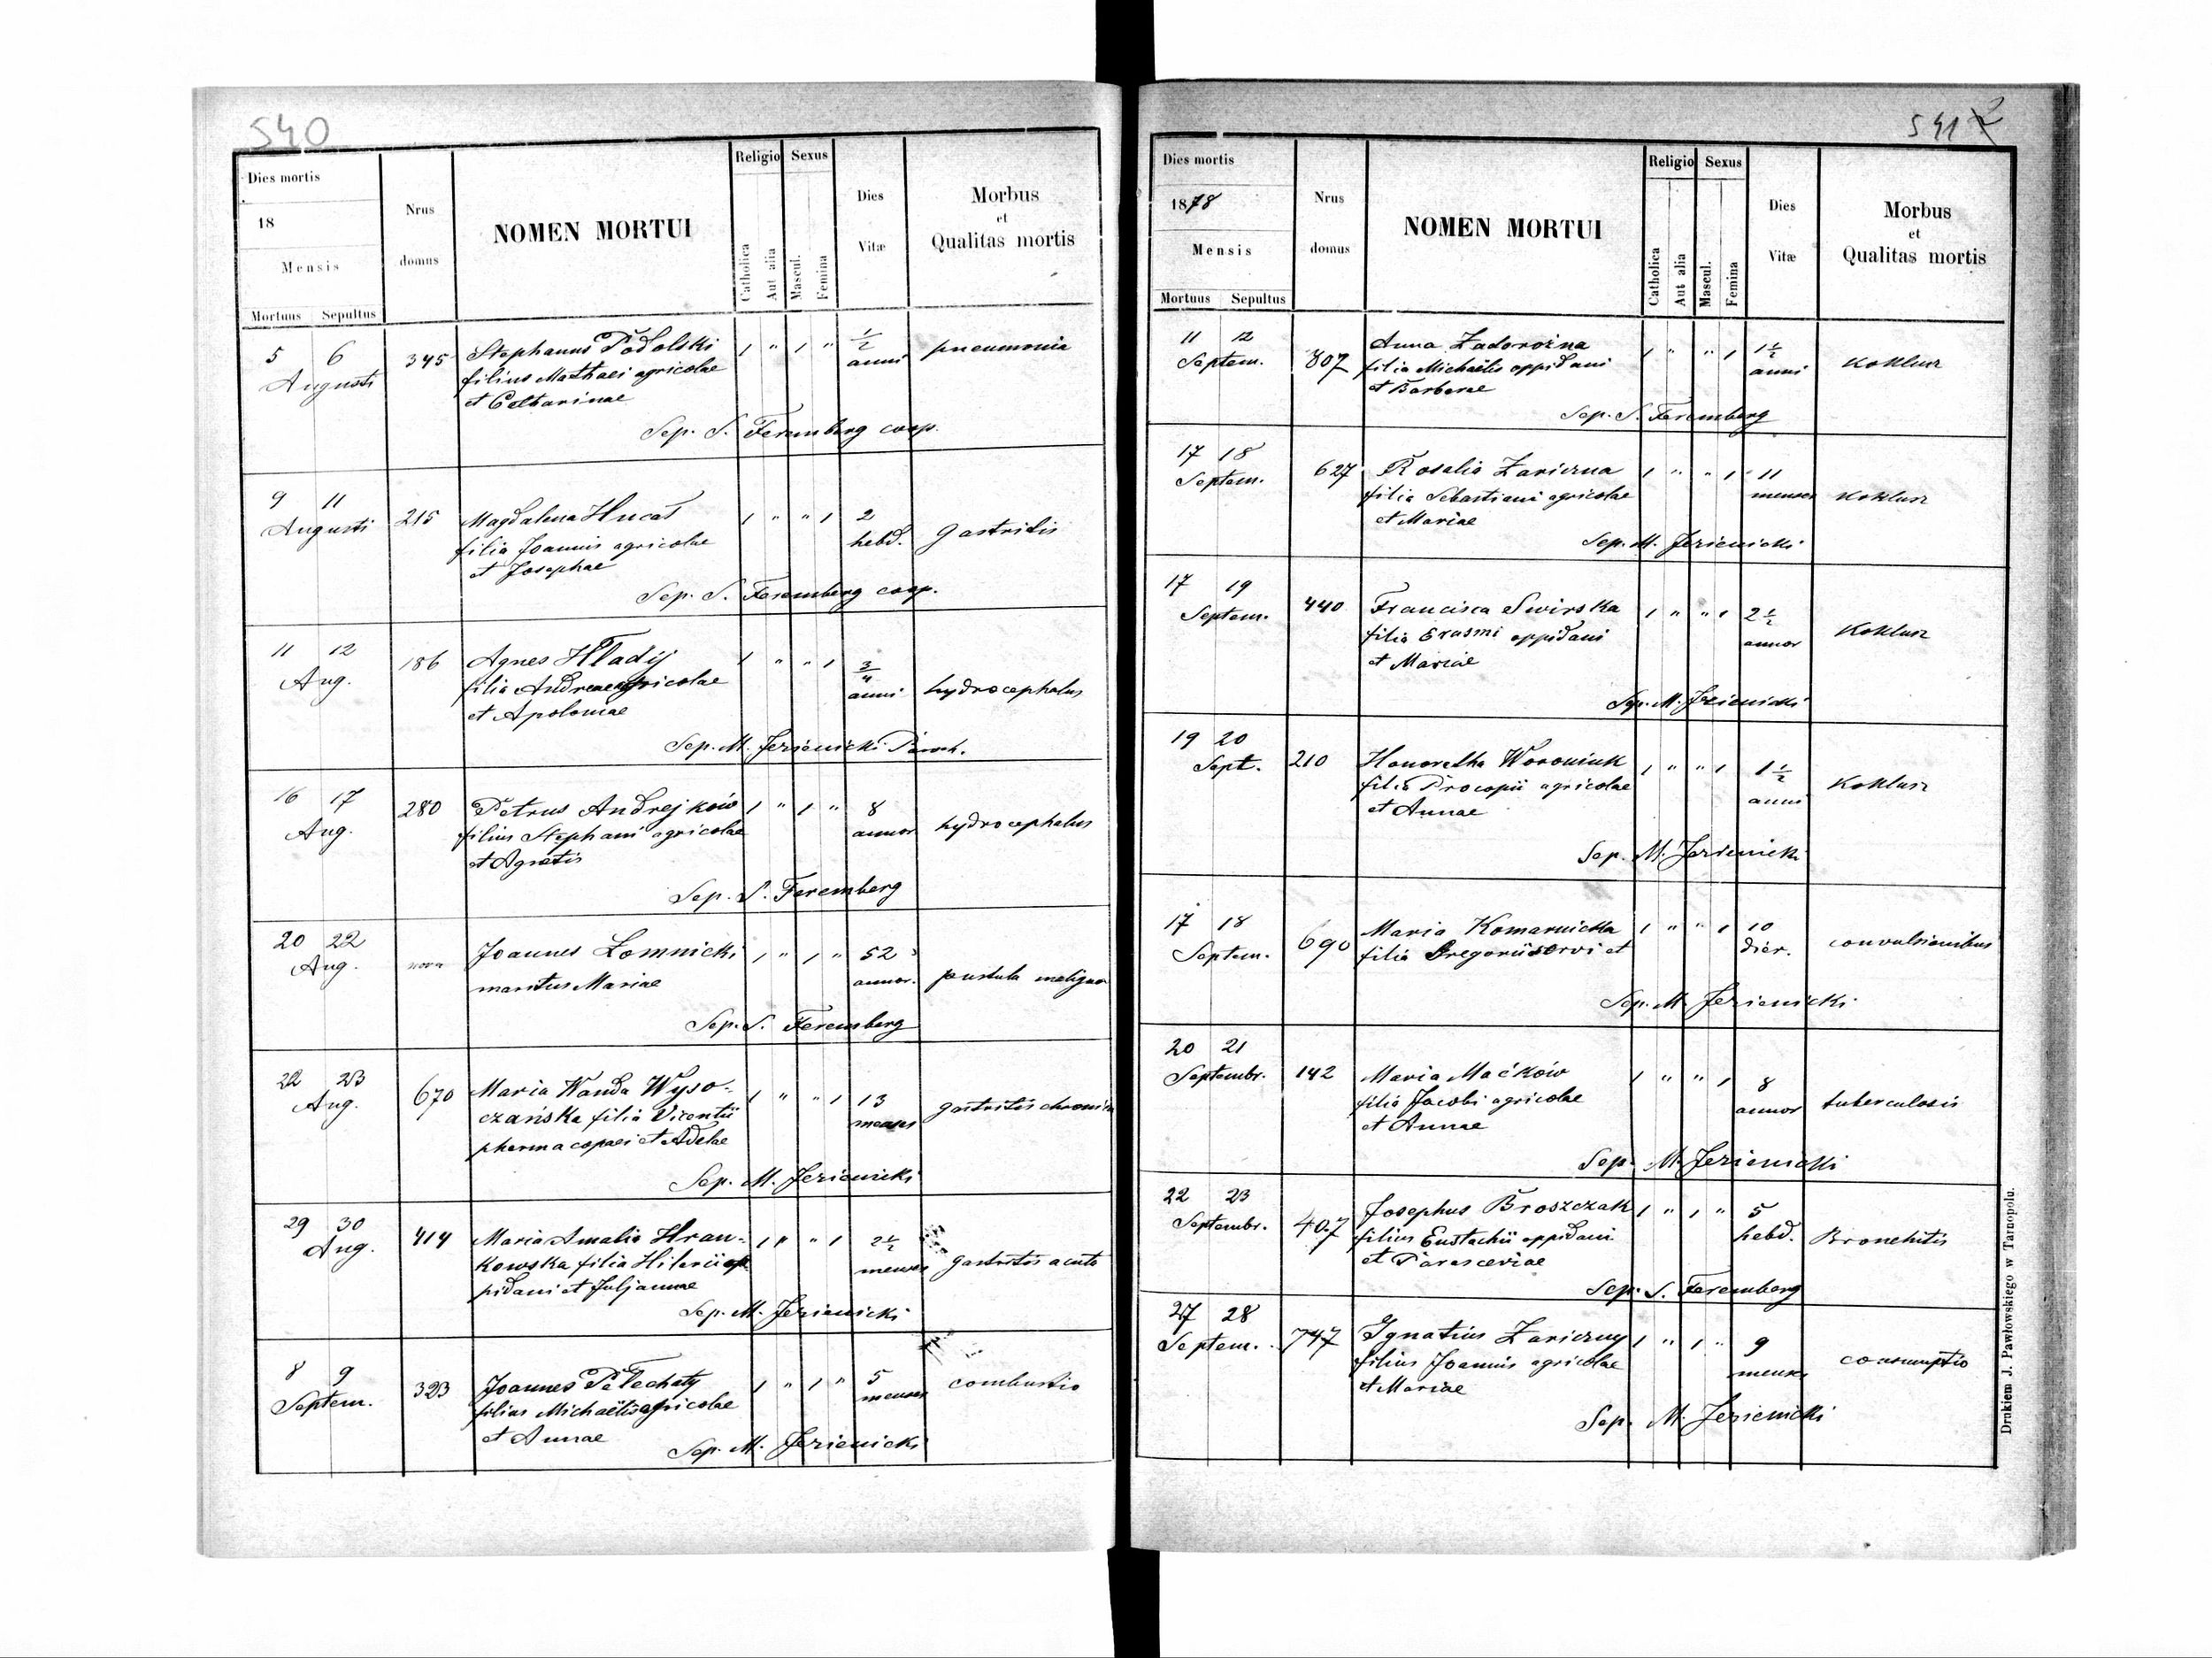 540
Dies mortis
18
Mensis
Mortuus Sepultus
Nrus domus
NOMEN MORTUI
Religio
Catholica
Aut alia
Sexus
Mascul.
Femina
Dies Vitæ
Morbus et Qualitas mortis
5 6 345 Stephanus Podolski 1 " 1 " 1/2 pneumonia
Augusti filius Mathaei agricolae anni
et Catharinae
Sep. S. Feremberg coop.
9 11 215 Magdalena Hucał 1 " " 1 2 Gastridis
Augusti filia Joannis agricolae hebd.
et Josephae
Sep. S. Feremberg coop.
11 12 186 Agnes Hładij 1 " " 1 3/4 hydrocephalus
Aug. filia Andreae agricolae anni
et Apoloniae
Sep. M. Jezienicki Paroch.
16 17 280 Petrus Andrejków 1 " 1 " 8 hydrocephalus
Aug. filius Stephani agricolae annor
et Agnetis
Sep. S. Feremberg
20 22 nova Joannes Łomnicki 1 " 1 " 52 pustula maligna
Aug. maritus Mariae annor.
Sep. S. Feremberg
22 23 670 Maria Wanda Wyso- 1 " " 1 13 gastritis chronica
Aug. czańska filia Vicentii menses
pharmacopaei et Adelae
Sep. M. Jezienicki
29 30 414 Maria Amalia Hran- 1 " " 1 2 1/2 gastritis acuta
Aug. kowska filia Hilarii op menses
pidani et Juljannae
Sep. M. Jezienicki
8 9 323 Joannes Pełechaty 1 " 1 " 5 combustio
Septem. filius Michaëlis agricolae menses
et Annae
Sep. M. Jezienicki
541 2
Dies mortis
1878
Mensis
Mortuus Sepultus
Nrus domus
NOMEN MORTUI
Religio
Catholica
Aut alia
Sexus
Mascul.
Femina
Dies Vitæ
Morbus et Qualitas mortis
11 12 807 Anna Zadorożna 1 " " 1 1 1/2 koklusz
Septem. filia Michaëlis oppidani anni
et Barbarae
Sep. S. Feremberg
17 18 627 Rosalia Zariczna 1 " " 1 11 koklusz
Septem. filia Sebastiani agricolae menses
et Mariae
Sep. M. Jezienicki
17 19 440 Francisca Swirska 1 " " 1 2 1/2 Koklusz
Septem. filia Erasmi oppidani annor
et Mariae
Sep. M. Jezienicki
19 20 210 Honoratha Woroniuk 1 " " 1 1 1/2 Koklusz
Sept. filia Procopii agricolae anni
et Annae
Sep. M. Jezienicki
17 18 690 Maria Komarnicka 1 " " 1 10 convulsionibus
Septem. filia Gregorii servi et dier.
Sep. M. Jezienicki
20 21 142 Maria Maćków 1 " " 1 8 tuberculosis
Septembr. filia Jacobi agricolae annor
et Annae
Sep. M. Jezienicki
22 23 407 Josephus Broszczak 1 " 1 " 5 Bronchitis
Septembr. filius Eustachii oppidani hebd.
et Parasceviae
Sep. S. Feremberg
27 28 747 Ignatius Zariczny 1 " 1 " 9 consumptio
Septem. filius Joannis agricolae menses
et Mariae
Sep. M. Jezienicki
Drukiem J. Pawłowskiego w Tarnopolu.